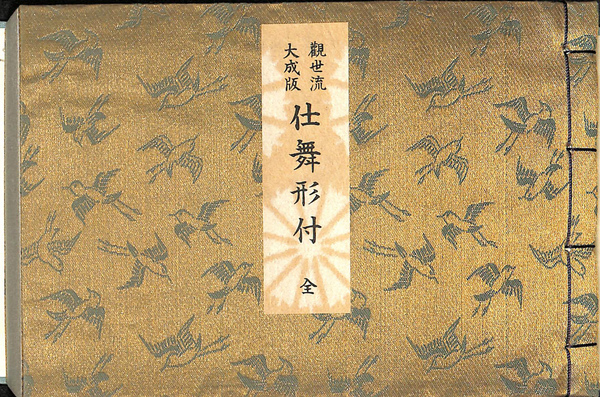 觀世流
大成版
仕舞形付
全